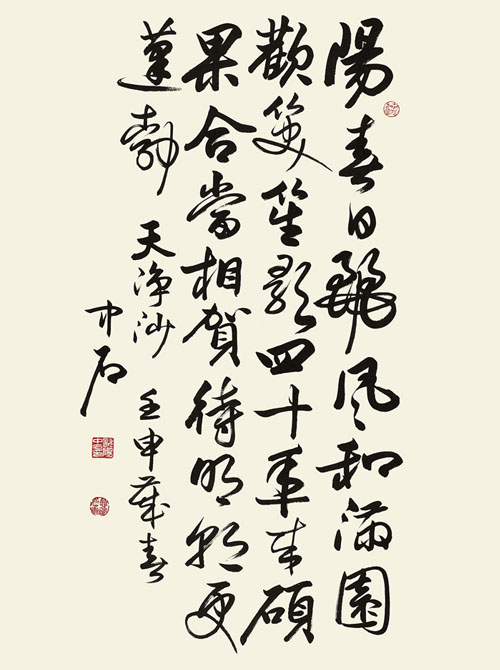 陽春日麗風和滿園
歡笑笙歌四十年來碩
果合當相賀待明朝更
蓬勃
天淨沙
壬申歲春
中石